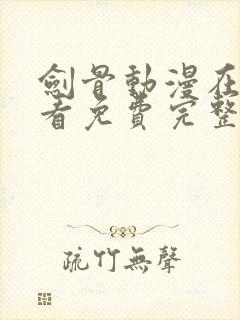 劍骨動漫在
看免費完整
疏竹無聲